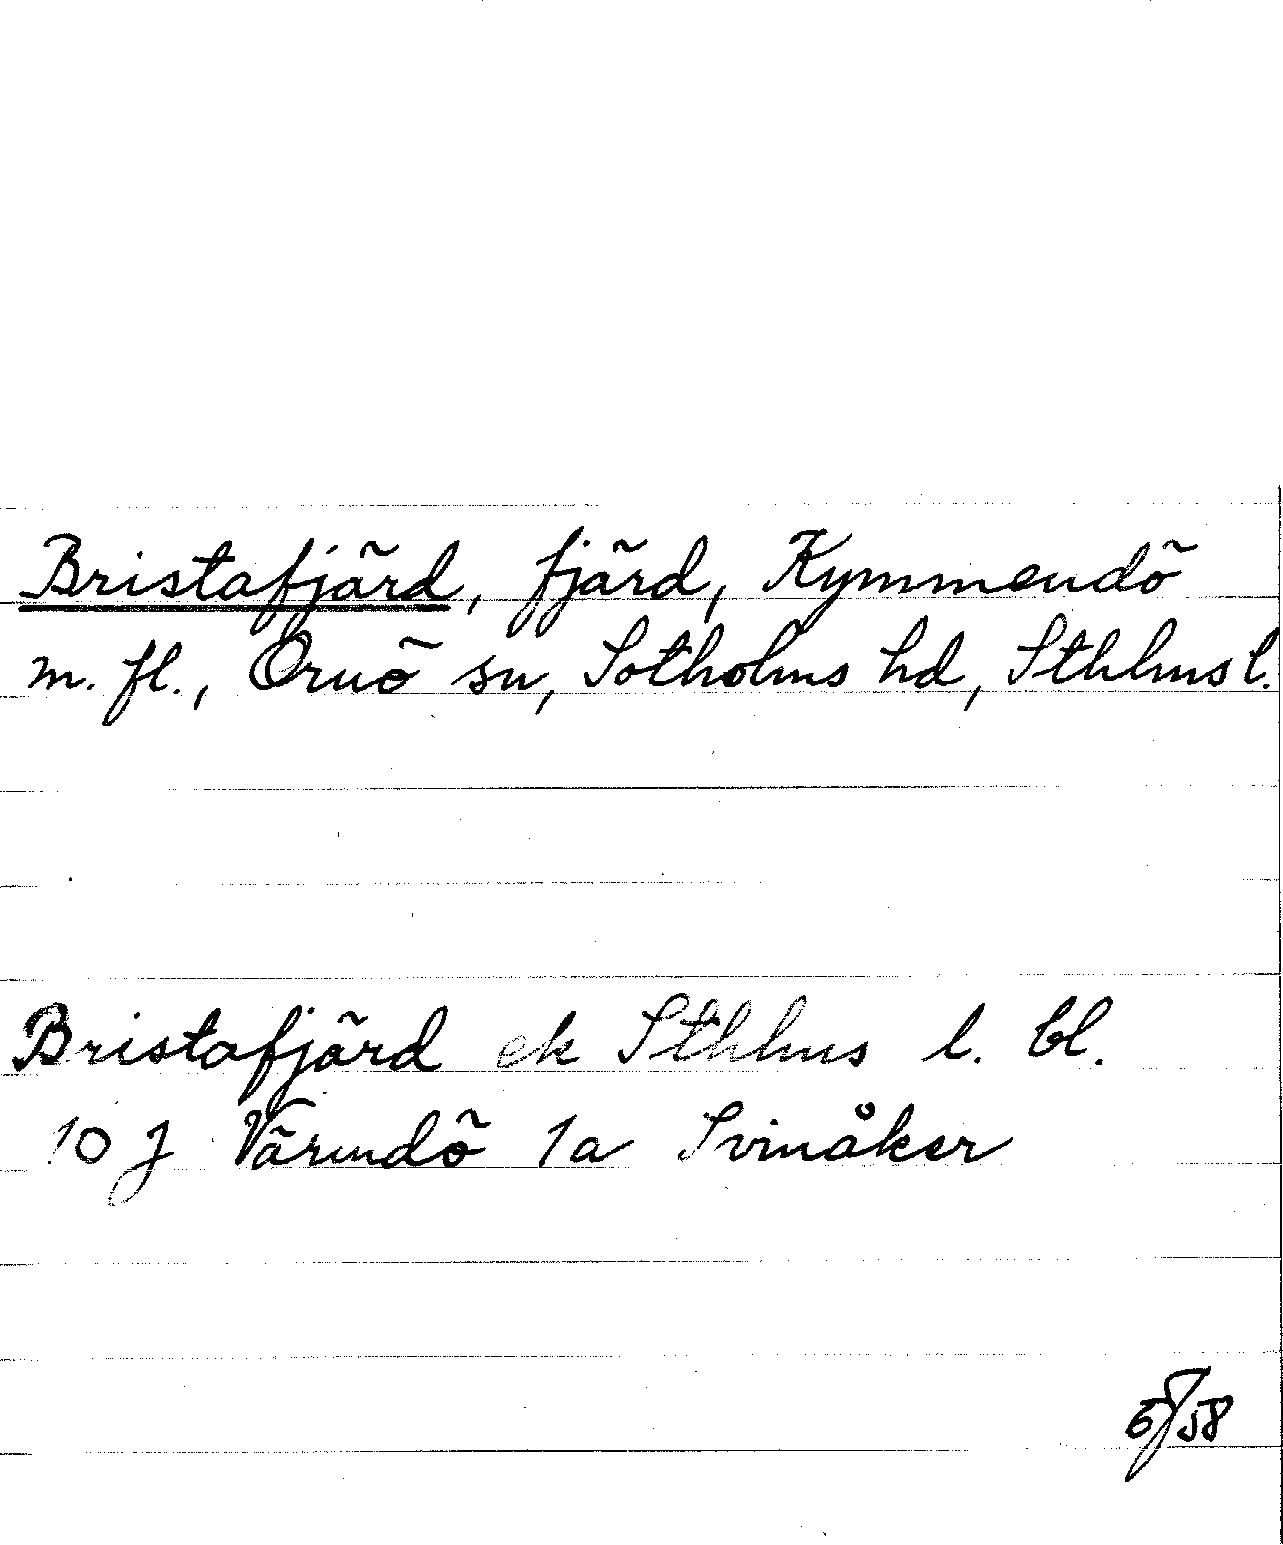 Bristafjärd, fjärd, Kymmendö
m. fl., Ornö sn, Sotholms hd, Sthlms l.
Bristafjärd ek Sthlms l. bl.
10 J Värmdö 1a Svinåker
58